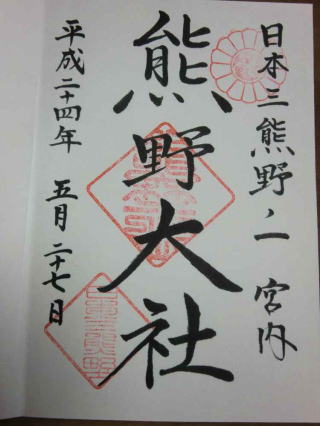 日本三熊野ノ一 宮内
熊野大社
平成二十四年 五月二十七日